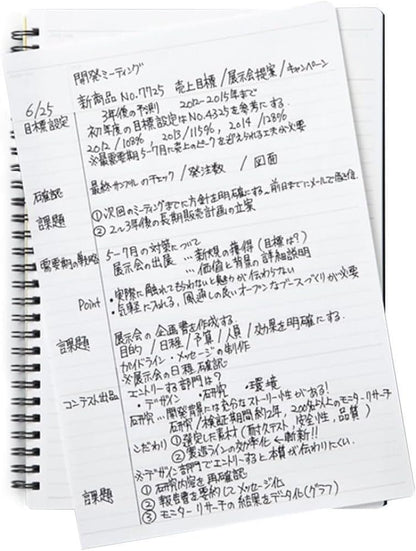 開発ミーティング
新商品No.7725 売上目標/展示会提案/キャンペーン
6/25 3年後の予測 2012-2015年まで
目標設定 初年度の目標設定はNo.4325を参考にする.
2012/108% , 2013/115% , 2014/128%
※最需要期5~7月に売上のピークを迎えられる工夫が必要
確認 最終サンプルのチェック/発注数 / 図面
課題 ①次回のミーティングまでに方針を明確にする~前日までにメールで
② 2~3年後の長期販売計画の立案
需要期の戦略 5~7月の対策について
展示会の出展 … 新規の獲得(目標は?)
… 価値と背景の詳細説明
Point ・実際に触れてもらわないと魅力が伝わらない
・気軽に入れる、風通しの良いオープンなブースづくりが必要
課題 展示会の企画書を作成する.
目的/日程/予算/人員/効果を明確にする.
ガイドライン・メッセージの制作
※展示会の日程確認
コンテスト出品 エントリーする部門は?
・デザイン ・研究 ・環境
研究…開発背景には充分なストーリー性がある!
研究/検証期間約2年, 200名以上のモニターリサーチ
こだわり ①選定した素材(耐久テスト, 安全性, 品質)
②製造ラインの効率化 ← 斬新!!
※デザイン部門でエントリーすると本質が伝わりにくい.
課題 ① 研究内容を再確認
② 報告書を要約してメッセージ化
③ モニターリサーチの結果をデータ化(グラフ)